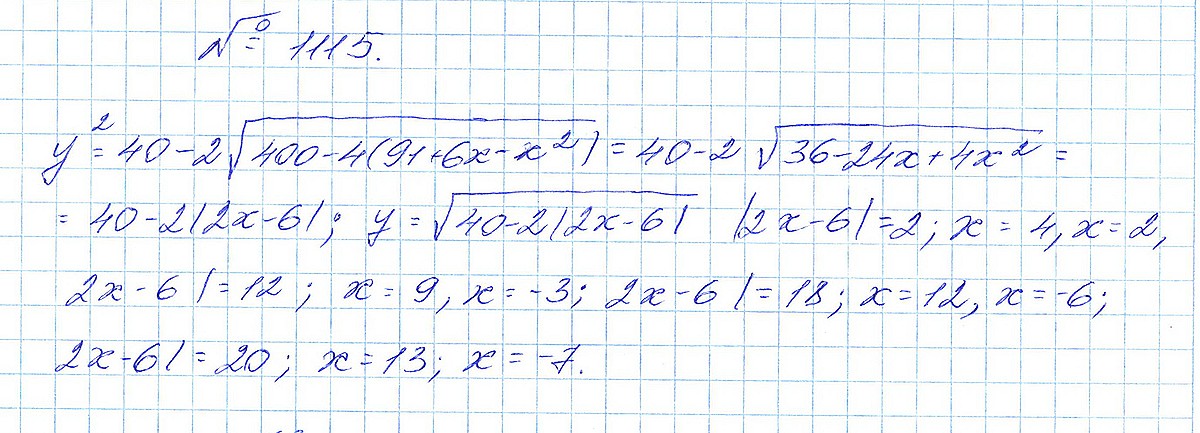 № 1115.
y² = 40 - 2√(400 - 4(91 + 6x - x²)) = 40 - 2√(36 - 24x + 4x²) =
= 40 - 2|2x - 6|; y = √(40 - 2|2x - 6|) |2x - 6| = 2; x = 4, x = 2,
2x - 6| = 12; x = 9, x = -3; 2x - 6| = 18; x = 12, x = -6;
2x - 6| = 20; x = 13; x = -7.